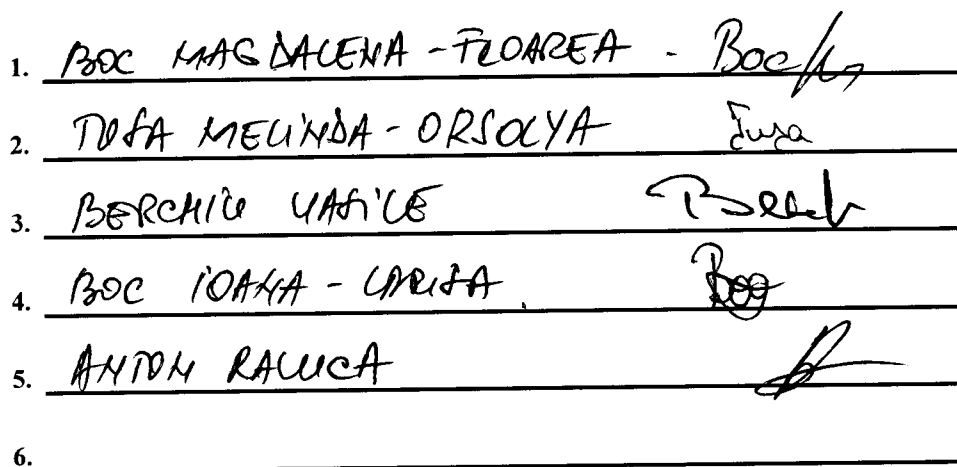 1. BOC MAGDALENA - FLOAREA - Boc
2. TUSA MELINDA - ORSOLYA Tusa
3. BERCHIU VASILE
4. BOC IOANA - LARISA Boc
5. ANTON RALUCA
6.